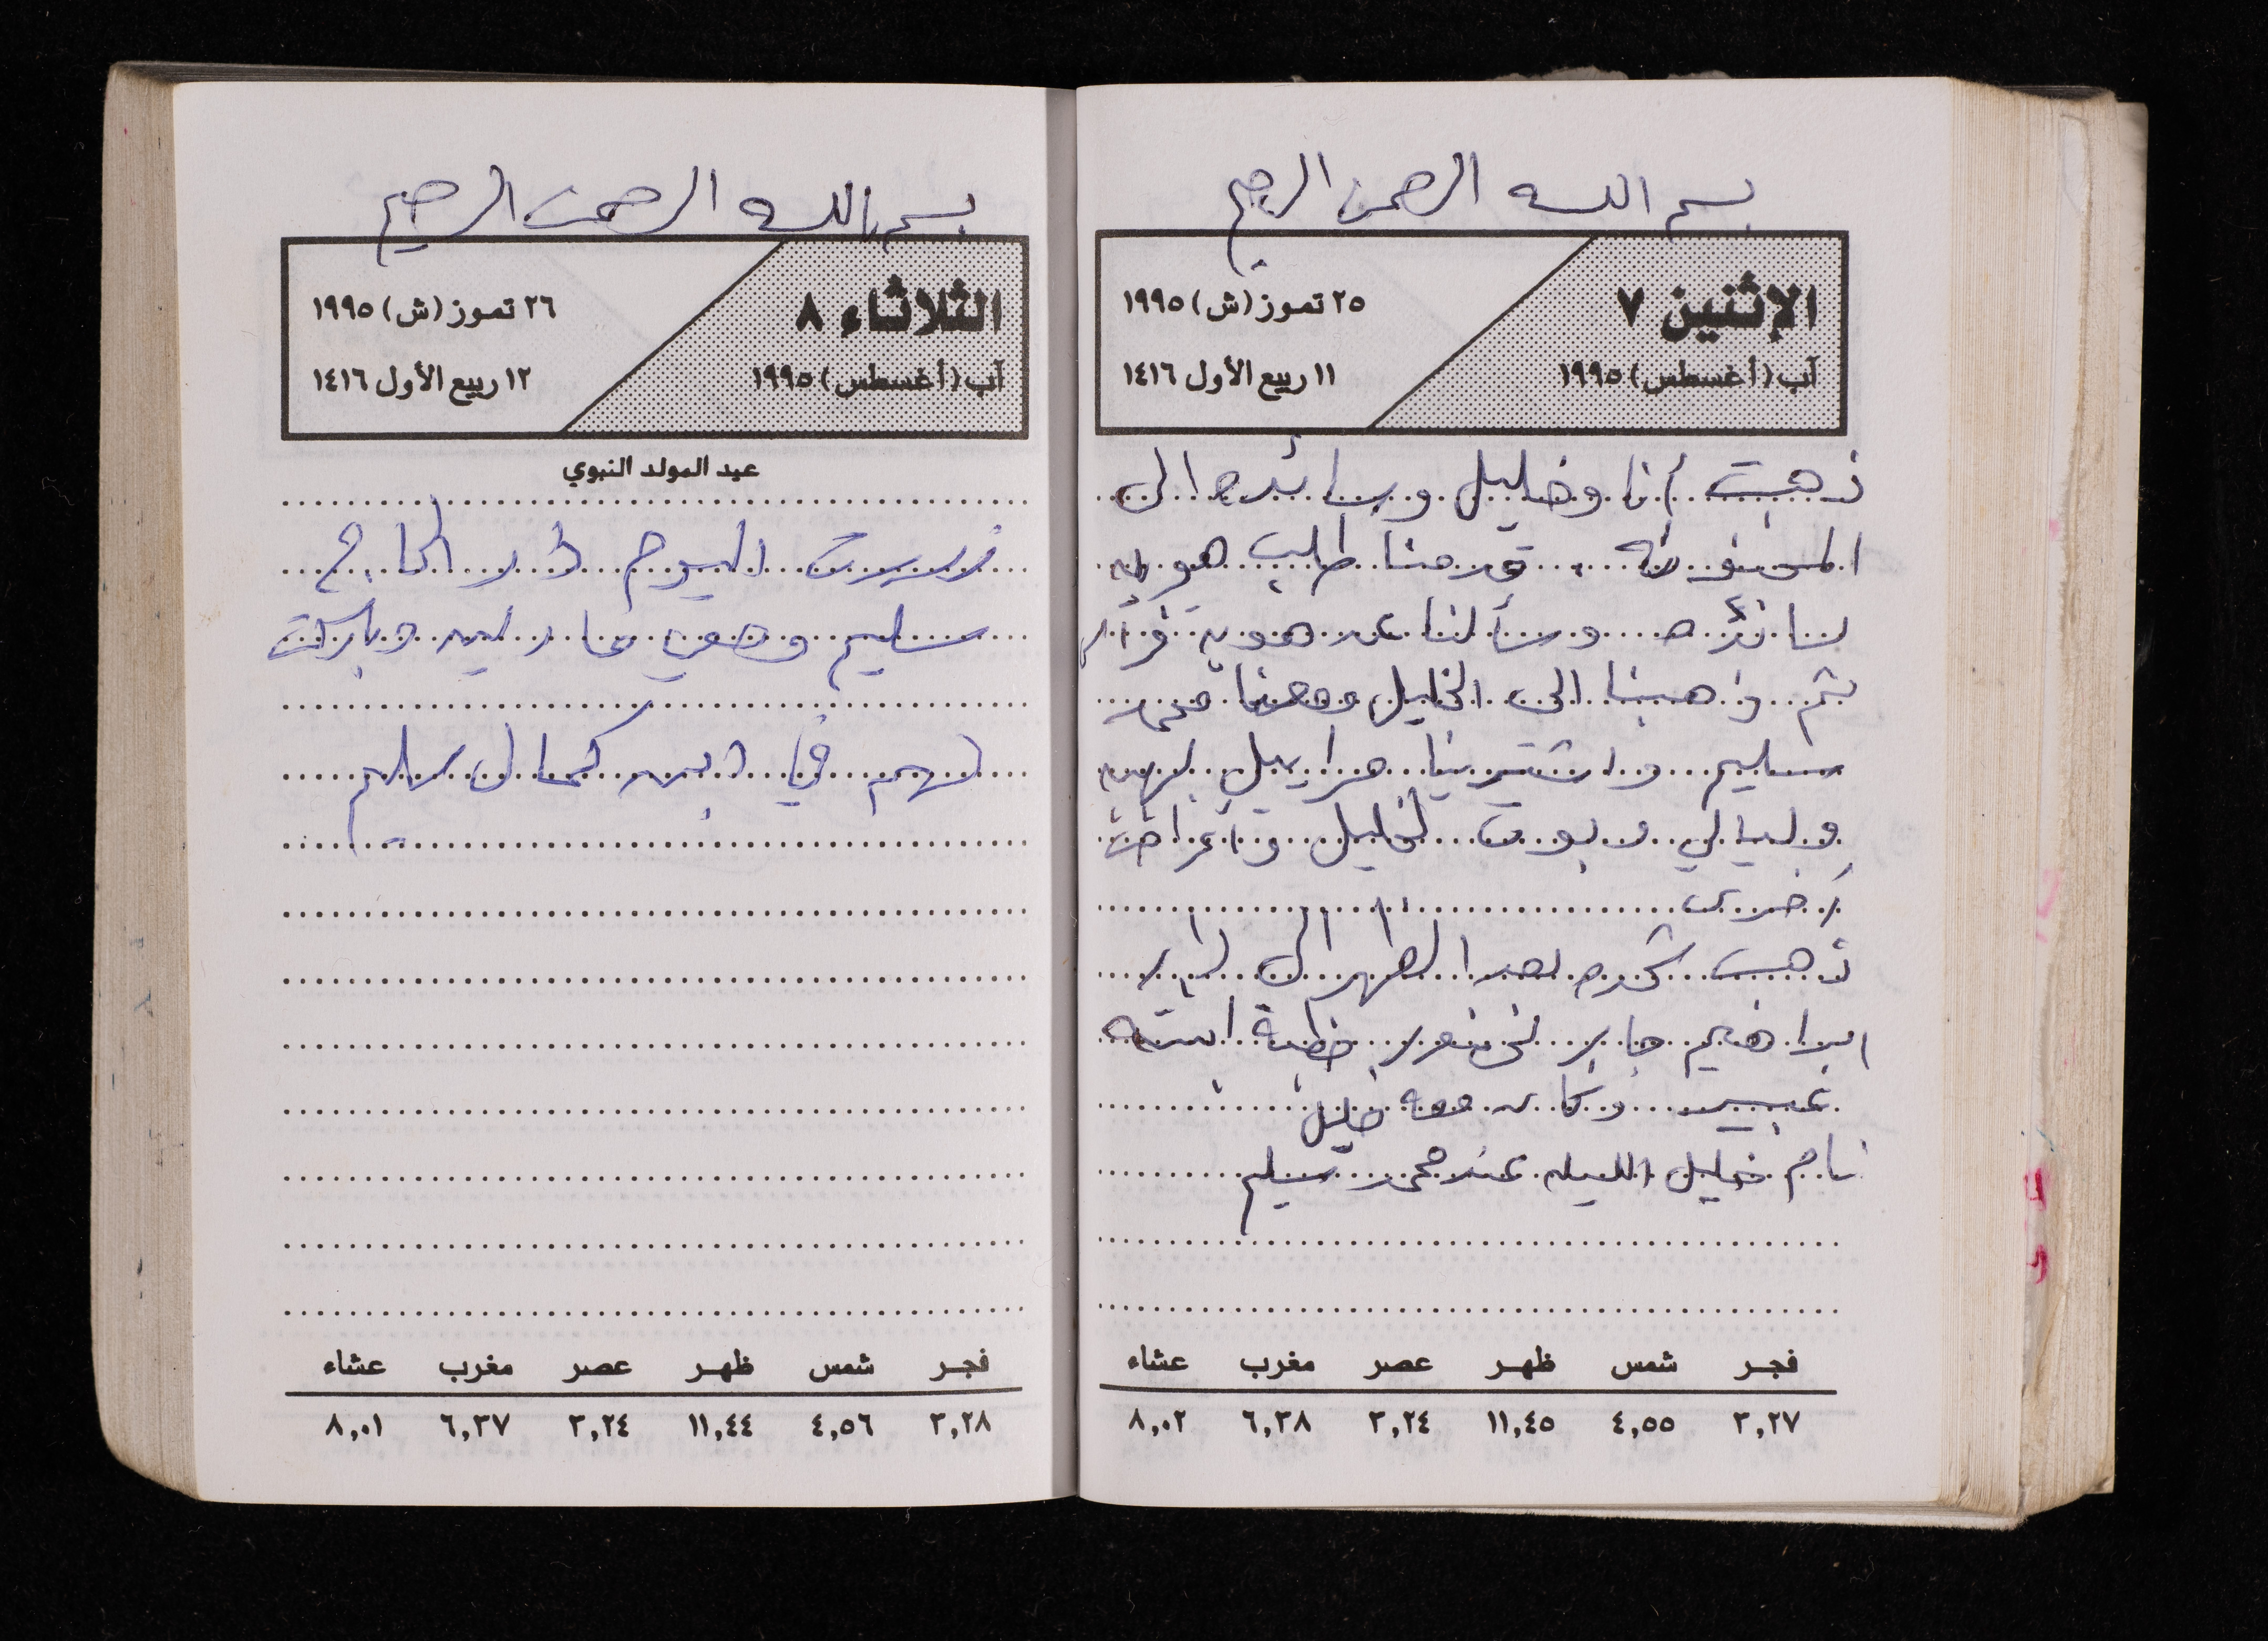 بسم الله الرحمن الرحيم
الإثنين ٧
آب (أغسطس) ١٩٩٥
٢٥ تموز (ش) ١٩٩٥
١١ ربيع الأول ١٤١٦
ذهبت أنا وخليل وسائده الى
قدمنا طلب هويه
لسائده وسألنا عن هويه
ثم ذهبنا الى الخليل ومعنا محمد
سليم واشترينا
خليل
أخرى
ذهبت بعد الظهر الى دار
ابراهيم جابر خطبة ابنته
عبير وكان معه خليل
نام خليل الليله عند محمد سليم
فجر شمس ظهر عصر مغرب عشاء
٣,٢٧ ٤,٥٥ ١١,٤٥ ٣,٢٤ ٦,٣٨ ٨,٠٢
بسم الله الرحمن الرحيم
الثلاثاء ٨
آب (أغسطس) ١٩٩٥
٢٦ تموز (ش) ١٩٩٥
١٢ ربيع الأول ١٤١٦
عيد المولد النبوي
زرت اليوم دار الحاج
سليم ومعي وباركت
لهم في ابن كمال سليم
فجر شمس ظهر عصر مغرب عشاء
٣,٢٨ ٤,٥٦ ١١,٤٤ ٣,٢٤ ٦,٣٧ ٨,٠١